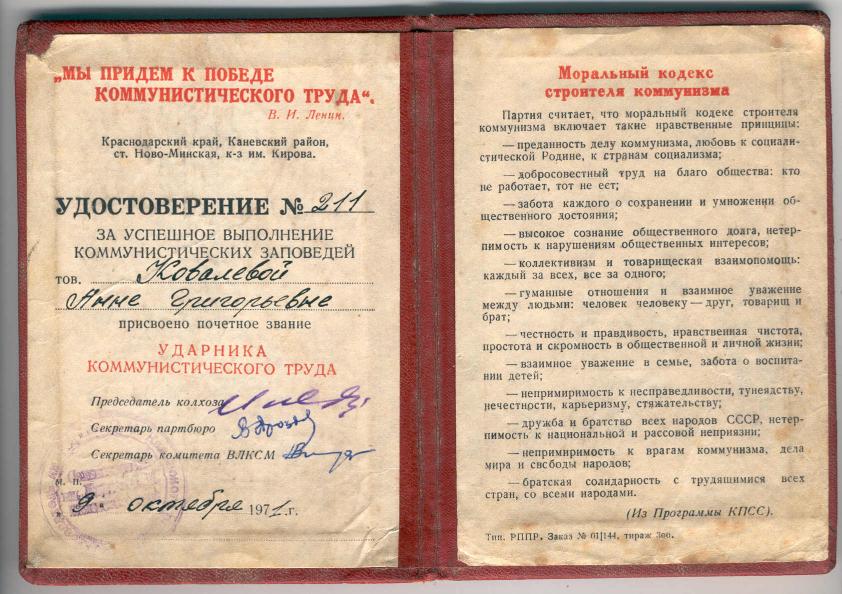 „МЫ ПРИДЕМ К ПОБЕДЕ
КОММУНИСТИЧЕСКОГО ТРУДА“.
В. И. Ленин.
Краснодарский край, Каневский район,
ст. Ново-Минская, к-з им. Кирова.
УДОСТОВЕРЕНИЕ № 211
ЗА УСПЕШНОЕ ВЫПОЛНЕНИЕ
КОММУНИСТИЧЕСКИХ ЗАПОВЕДЕЙ
тов. Ковалевой
Анне Григорьевне
присвоено почетное звание
УДАРНИКА
КОММУНИСТИЧЕСКОГО ТРУДА
Председатель колхоза
Секретарь партбюро
Секретарь комитета ВЛКСМ
м. п.
„9“ октября 1971 г.
Моральный кодекс
строителя коммунизма
Партия считает, что моральный кодекс строителя
коммунизма включает такие нравственные принципы:
— преданность делу коммунизма, любовь к социали-
стической Родине, к странам социализма;
— добросовестный труд на благо общества: кто
не работает, тот не ест;
— забота каждого о сохранении и умножении об-
щественного достояния;
— высокое сознание общественного долга, нетер-
пимость к нарушениям общественных интересов;
— коллективизм и товарищеская взаимопомощь:
каждый за всех, все за одного;
— гуманные отношения и взаимное уважение
между людьми: человек человеку — друг, товарищ и
брат;
— честность и правдивость, нравственная чистота,
простота и скромность в общественной и личной жизни;
— взаимное уважение в семье, забота о воспита-
нии детей;
— непримиримость к несправедливости, тунеядству,
нечестности, карьеризму, стяжательству;
— дружба и братство всех народов СССР, нетер-
пимость к национальной и рассовой неприязни;
— непримиримость к врагам коммунизма, дела
мира и свободы народов;
— братская солидарность с трудящимися всех
стран, со всеми народами.
(Из Программы КПСС).
Тип. РППР. Заказ № 01|144, тираж 3оо.